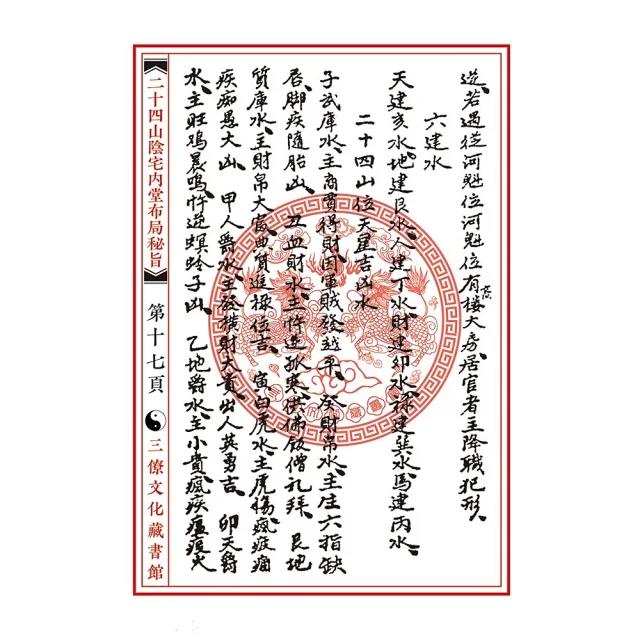 逆、若遇從河魁位河魁位有樓大房居官者主降職犯形、
六建水
天建亥水地建艮水人建丁水財建卯水祿建巽水馬建丙水、
二十四山位天星吉凶水
子武庫水、主商賈得財因軍賊發越平、癸財帛水、主生六指缺
唇、脚疾隨胎凶、丑血財水、主忤逆孤寒供佛飯僧礼拜、艮地
質庫水、主財帛大富典質進祿位吉、寅白虎水、主虎傷瘋疾
疾痴愚大凶、甲人爵水、主發橫財大貴出人英勇吉、卯天爵
水、主旺鷄晨鳴忤逆螟蛉子凶、乙地爵水、主小貴瘋疾瘟疫火
《二十四山陰宅内堂布局秘旨》 第十七頁 三僚文化藏書館